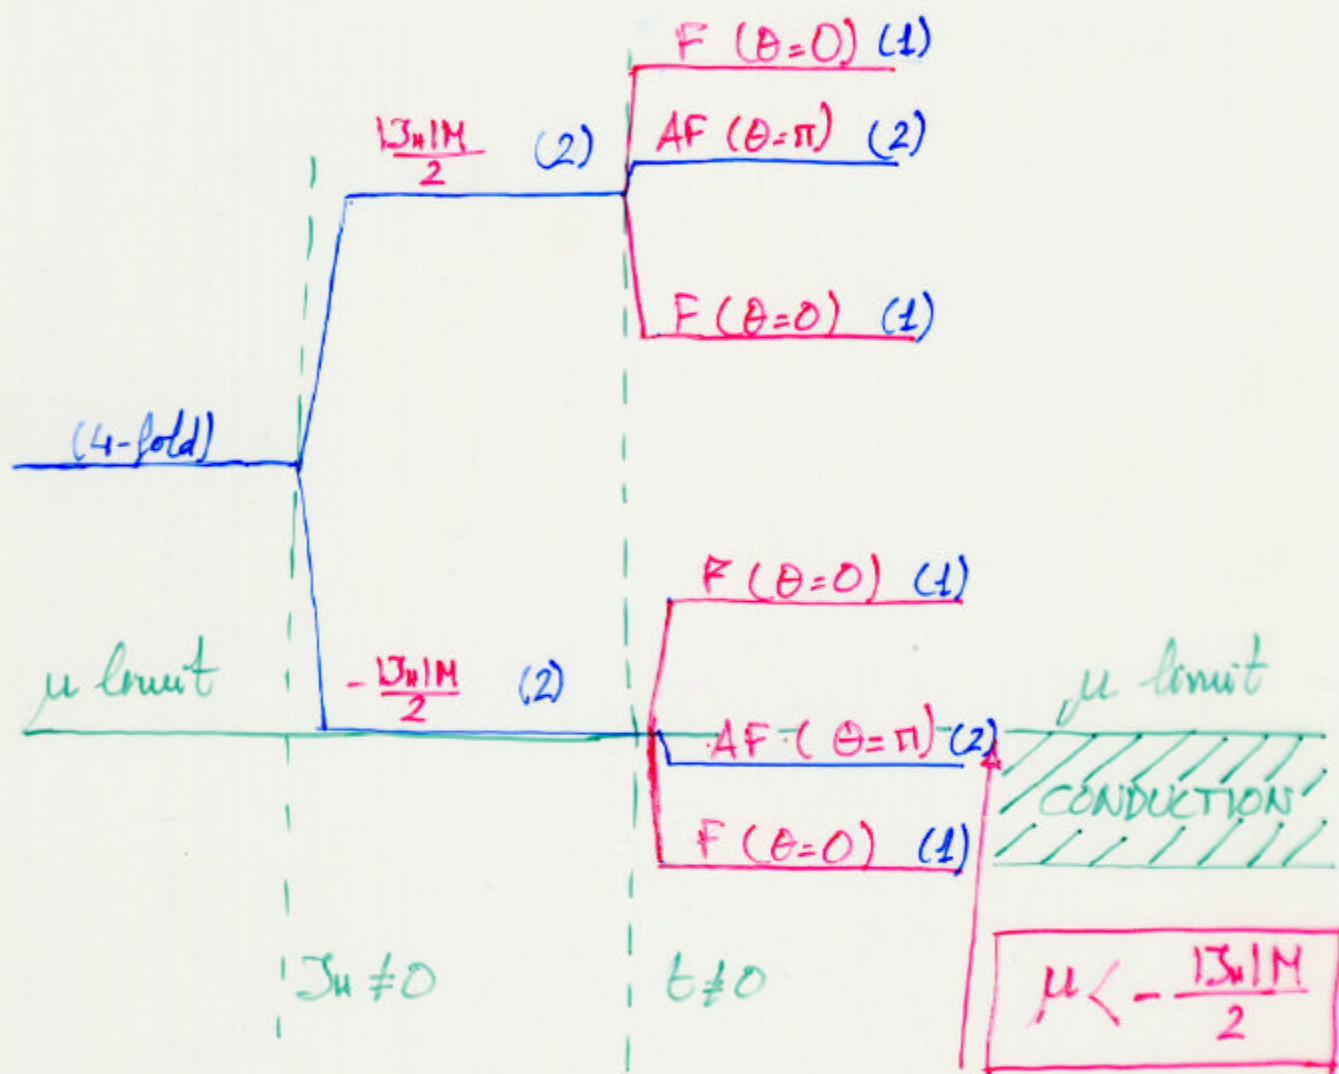 F (θ=0) (1)
|J_H|M/2 (2)
AF (θ=π) (2)
F (θ=0) (1)
(4-fold)
F (θ=0) (1)
μ limit
-|J_H|M/2 (2)
μ limit
AF (θ=π) (2)
CONDUCTION
F (θ=0) (1)
J_H ≠0
t≠0
μ < - |J_H|M/2